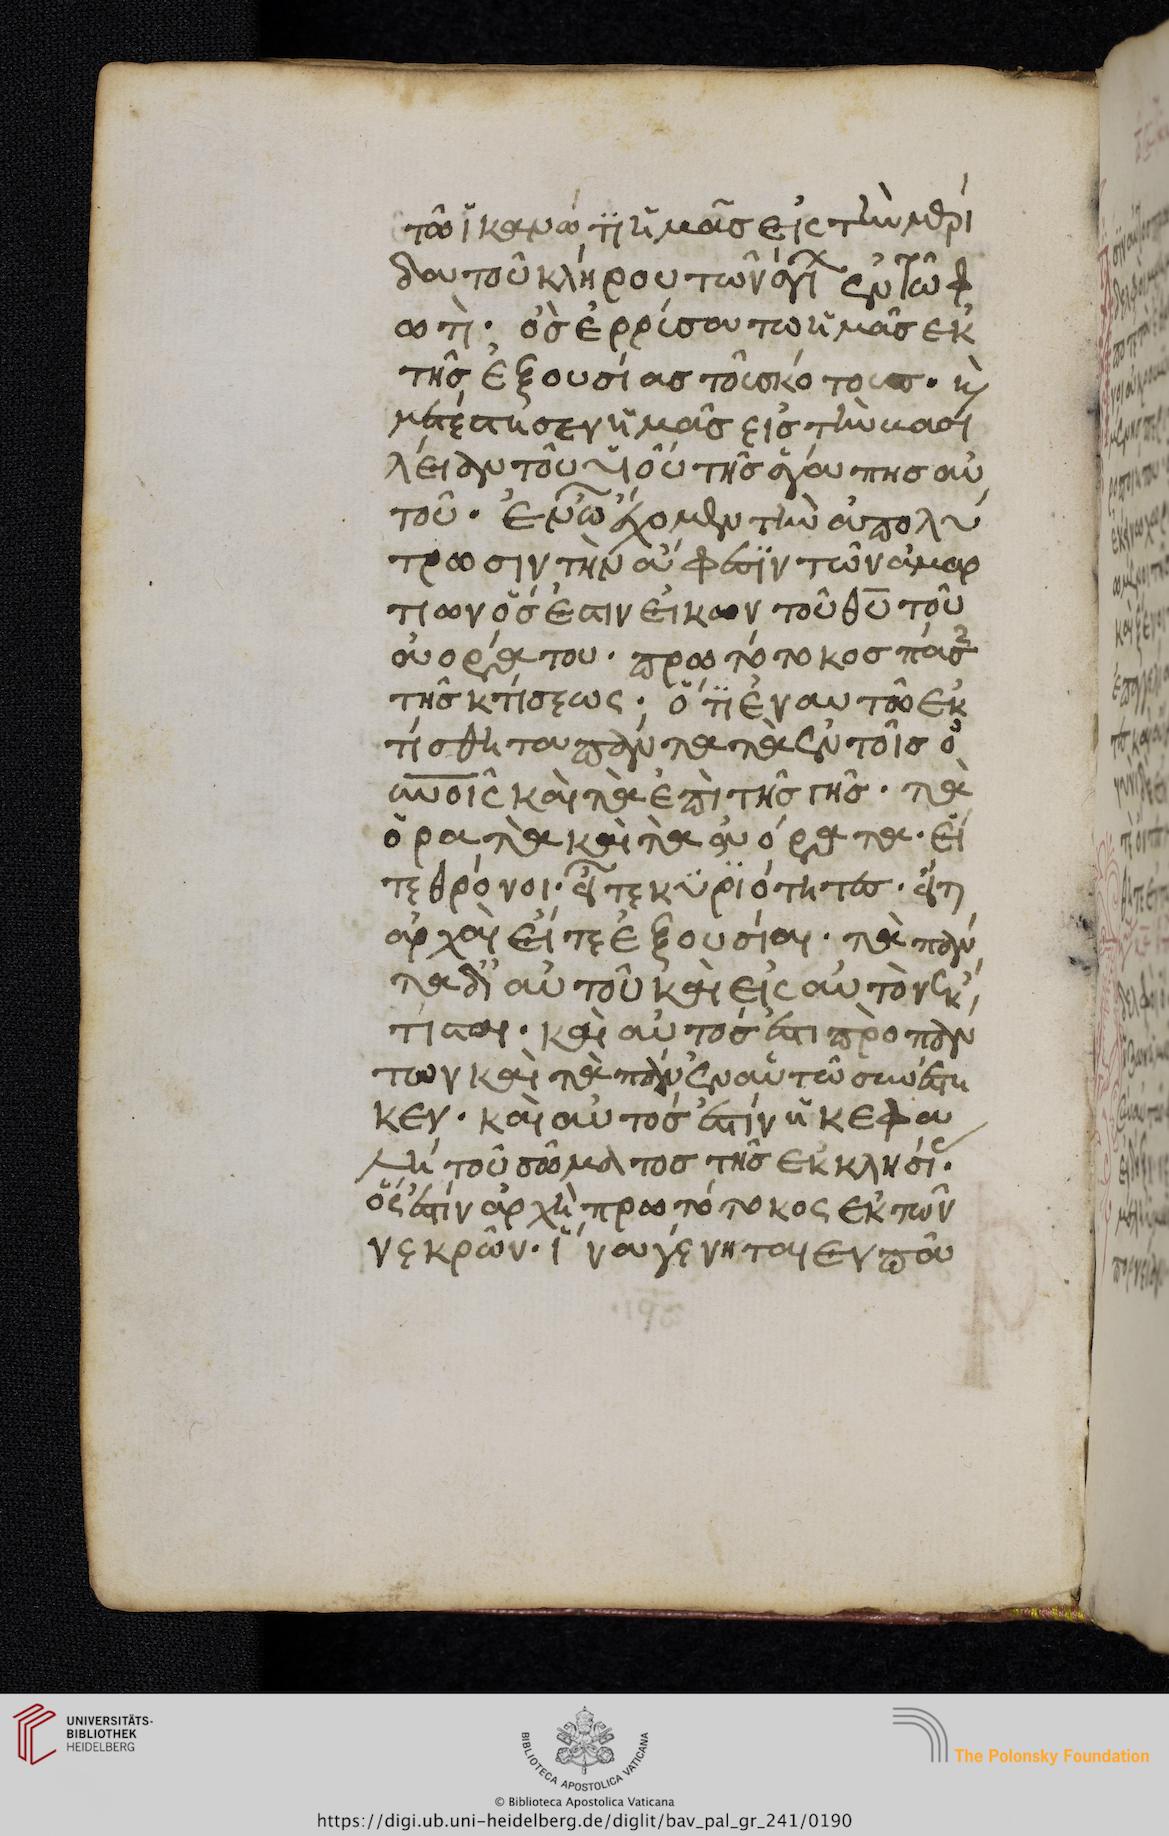 τῶ ἱκανώ τϊ ἡμᾶσ εἰς τὴν μερί
δα τοῦ κλήρου τῶν ἁγί ἐν τῶ φ
ωτὶ · ὃσ ἐρρύσατω ἡμᾶσ ἐκ
τῆσ ἐξουσίασ τοῦ σκότους · κὶ
μετέστησεν ἡμᾶσ εἰσ τὴν βασι
λείαν τοῦ υἱοῦ τῆσ ἀγάπησ αὐ
τοῦ · ἐν ῶ ἔχομεν τὴν ἀπολύ
τρωσιν τὴν ἄφεσϊν τῶν ἁμαρ
τιων ὅσ ἐστιν εἰκων τοῦ θῡ τοῦ
ἀοράτου · πρωτότοκοσ πάσ
τῆσ κτίσεως · ὅτϊ ἐν αυτῶ ἐκ
τίσθη τα πάντα τὰ ἐν τοῖσ ὀυ
ανοῖς καὶ τὰ ἐπὶ τῆσ γῆσ · τὰ
ὁρατὰ καὶ τὰ ἀόρατα · εἴ
τε θρόνοι · εἴτε κϋρϊότητεσ · εἴτε
ἀρχαὶ εἴτε ἐξουσίαι · τὰ πάν
τα δϊ αὐτοῦ καὶ εἰς αὐτὸν ἔκ
τισται · καὶ αὐτοσ ἐστι πρὸ πάν
των καὶ τὰ πάντ ἐν αὐτῶ συνέστη
κεν · καὶ αὐτοσ ἐστίν ἡ κεφα
λὴ τοῦ σώματοσ τῆσ ἐκκλησί ·
ὅς ἐστίν ἀρχὴ πρωτότοκος ἐκ τῶν
νεκρῶν · ἵνα γένηται εν πᾶ
UNIVERSITÄTS-
BIBLIOTHEK
HEIDELBERG
BIBLIOTECA APOSTOLICA VATICANA
The Polonsky Foundation
© Biblioteca Apostolica Vaticana
https://digi.ub.uni-heidelberg.de/diglit/bav_pal_gr_241/0190